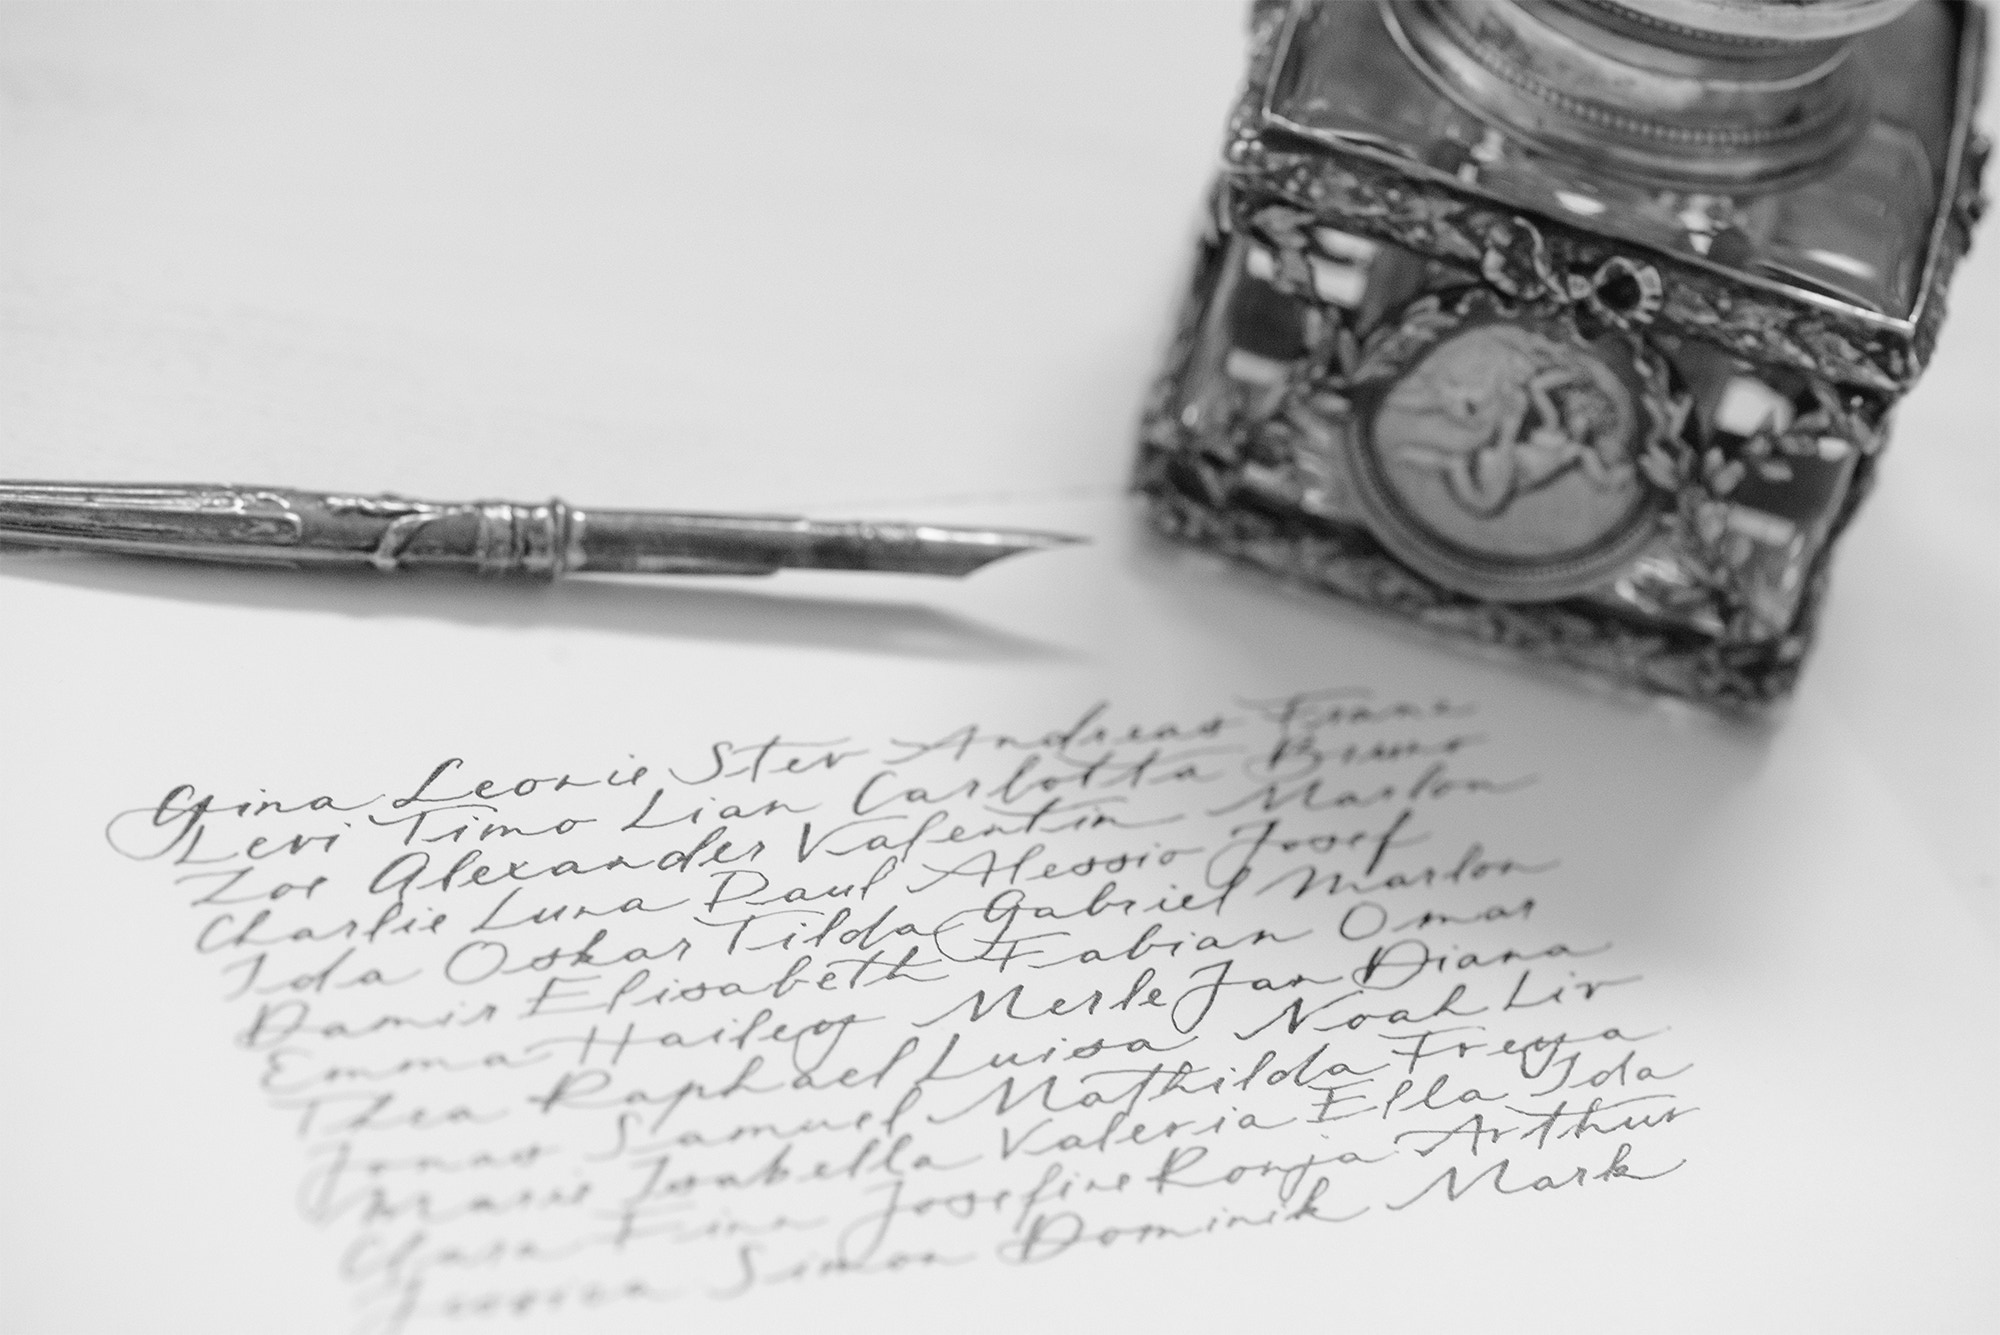 Gina Leonie Stev Andreas Finne
Levi Timo Lian Carlotta Bruno
Zoe Alexander Valentin Marlon
Charlie Luna Paul Alessio Josef
Ida Oskar Tilda Gabriel Marlon
Damir Elisabeth Fabian Omar
Emma Hailey Merle Jan Diana
Thea Raphael Luisa Noah Liv
Jonas Samuel Mathilda Freya
Marie Isabella Valeria Ella Ida
Clara Finn Josefine Ronja Arthur
Simon Dominik Mark